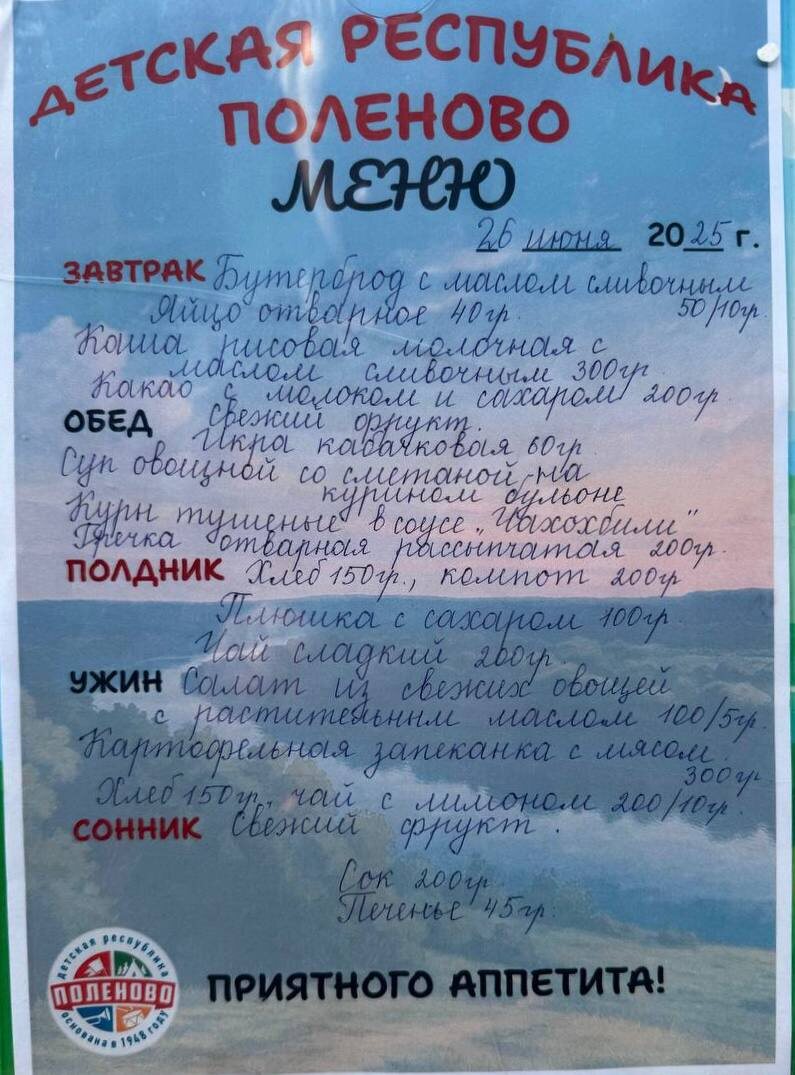 ДЕТСКАЯ РЕСПУБЛИКА
ПОЛЕНОВО
МЕНЮ
26 июня 2025 г.
ЗАВТРАК Бутерброд с маслом сливочным
Яйцо отварное 40гр. 50/10гр.
Каша рисовая молочная с
маслом сливочным 300гр.
Какао с молоком и сахаром 200гр.
ОБЕД свежий фрукт.
Икра кабачковая 60гр
Суп овощной со сметаной, на
курином бульоне
Куры тушеные в соусе „Чахохбили"
Гречка отварная рассыпчатая 200гр.
ПОЛДНИК Хлеб 150гр., компот 200гр
Плюшка с сахаром 100гр.
Чай сладкий 200гр.
УЖИН Салат из свежих овощей
с растительным маслом 100/5гр.
Картофельная запеканка с мясом
300гр.
Хлеб 150гр., чай с лимоном 200/10гр.
СОННИК Свежий фрукт.
Сок 200гр.
Печенье 45гр.
ПРИЯТНОГО АППЕТИТА!
детская республика
ПОЛЕНОВО
основана в 1948 году